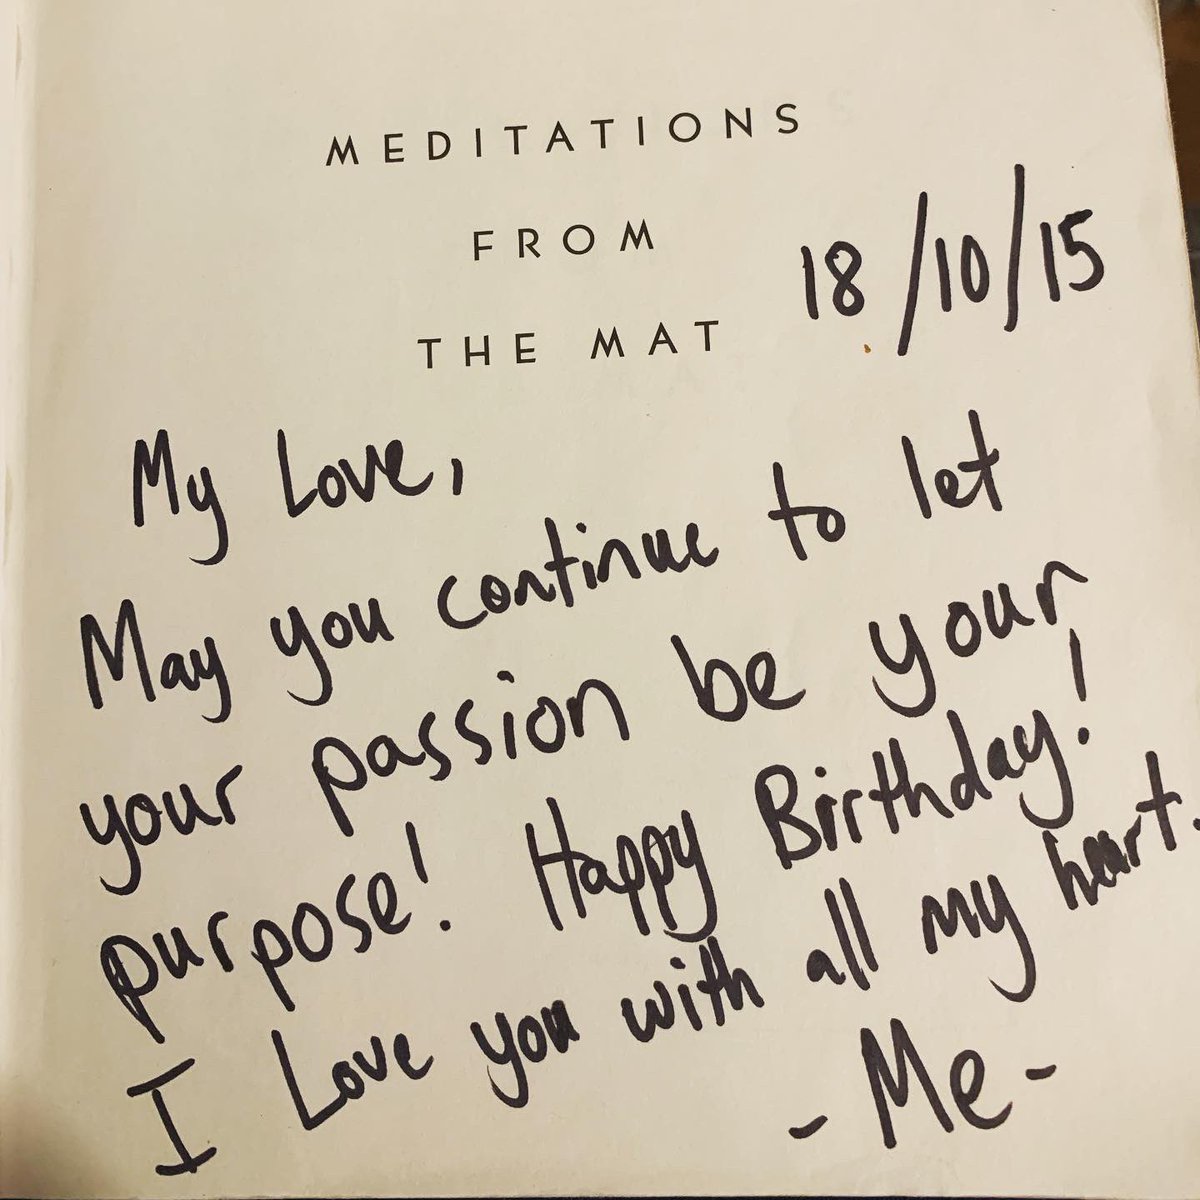 MEDITATIONS
FROM
THE MAT
18/10/15
My Love,
May you continue to let
your passion be your
purpose! Happy Birthday!
I Love you with all my heart.
- Me -